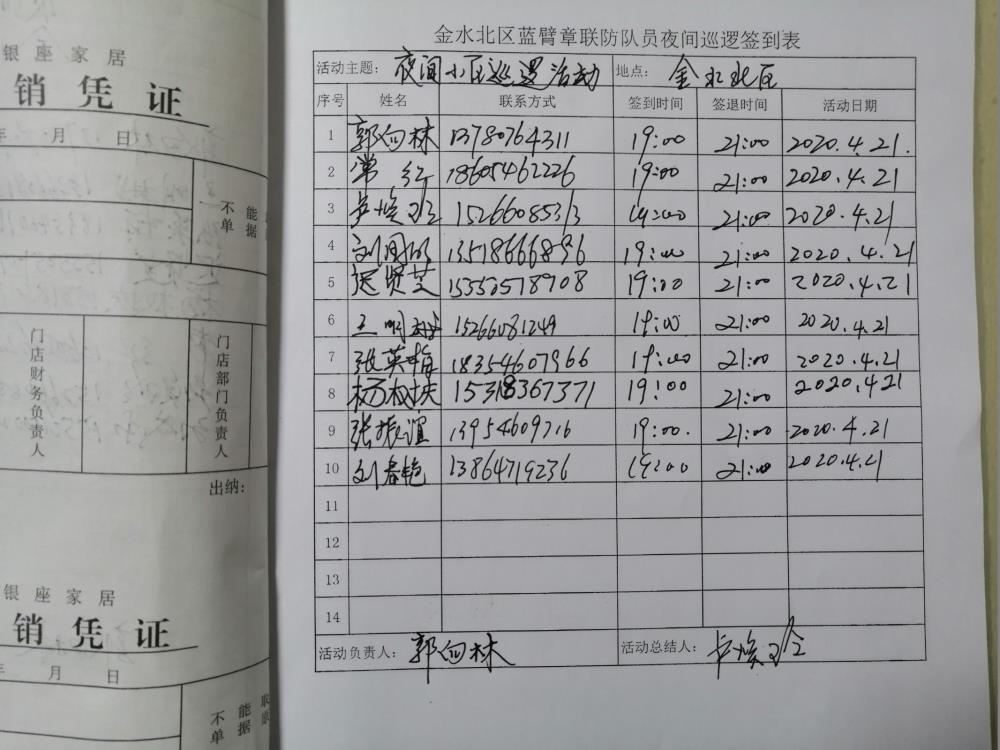 银座家居
销凭证
年 月 日
不能
单据
门店财务负责人
门店部门负责人
出纳：
银座家居
销凭证
年 月 日
不能
单据
金水北区蓝臂章联防队员夜间巡逻签到表
活动主题： 夜间小区巡逻活动 地点： 金水北区
序号 姓名 联系方式 签到时间 签退时间 活动日期
1 郭向林 13780764311 19:00 21:00 2020.4.21.
2 常红 18605462226 19:00 21:00 2020.4.21
3 15266085313 19:00 21:00 2020.4.21
4 13518666896 19:00 21:00 2020.4.21
5 15550578908 19:00 21:00 2020.4.21
6 15266081249 19:00 21:00 2020.4.21
7 张英梅 18354607966 19:00 21:00 2020.4.21
8 15318367371 19:00 21:00 2020.4.21
9 张振谊 13954609716 19:00. 21:00 2020.4.21
10 刘春艳 13864719236 19:00 21:00 2020.4.21
11
12
13
14
活动负责人： 郭向林 活动总结人：